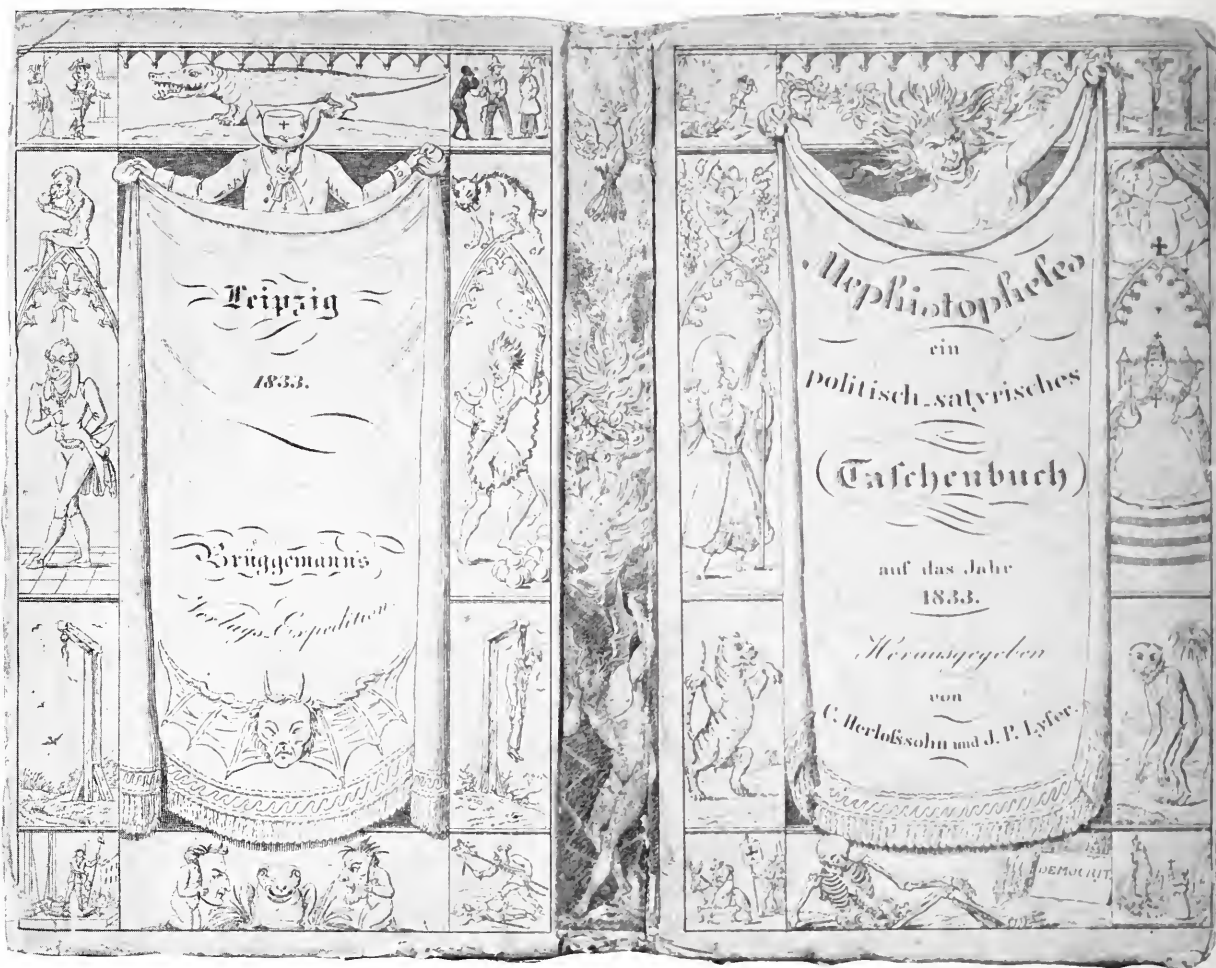 Leipzig
1833.
Brüggemann's
Verlags-Expedition.
Mephistopheles
ein
politisch-satyrisches
(Taschenbuch)
auf das Jahr
1833.
Herausgegeben
von
C. Herloßsohn und J. P. Lyser.
DEMOCRIT